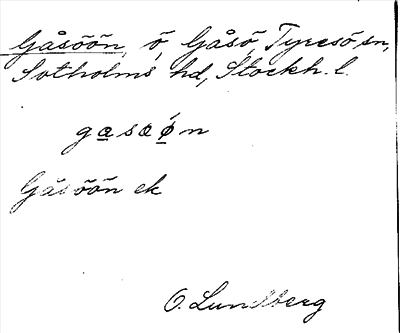 Gåsöön, ö, Gåsö, Tyresö sn,
Sotholms hd, Stockh. l.
gasøøn
Gåsöön ek
O. Lundberg